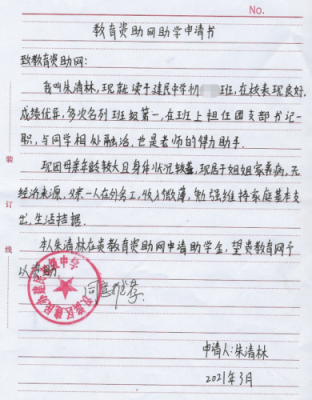 No.
教育资助网助学申请书
致教育资助网:
我叫朱清林,现就读于建民中学初 班,在校表现良好,
成绩优异,多次名列班级第一,在班上担任团支部书记一
职,与同学相处融洽,也是老师的得力助手.
现因母亲年龄较大且身体状况较差,现居于姐姐家养病,无
经济来源,父亲一人在外务工,收入微薄,勉强维持家庭基本支
出,生活拮据.
本人朱清林在贵教育资助网申请助学金,望贵教育网予
以资助.
同意推荐.
装
订
线
申请人:朱清林
2021年3月